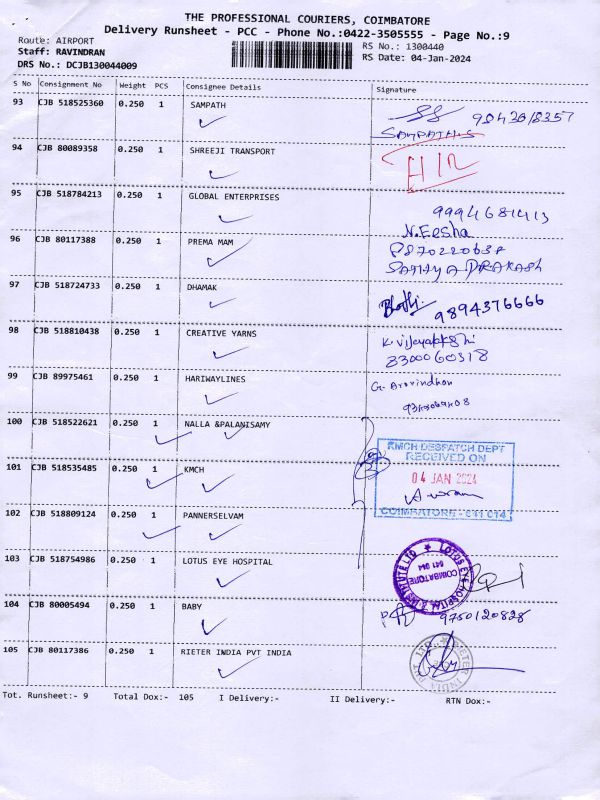 THE PROFESSIONAL COURIERS, COIMBATORE
Delivery Runsheet - PCC - Phone No.:0422-3505555 - Page No.:9
Route: AIRPORT
RS No.: 1300440
Staff: RAVINDRAN
RS Date: 04-Jan-2024
DRS No.: DCJB130044009
S No Consignment No Weight PCS Consignee Details Signature
93 CJB 518525360 0.250 1 SAMPATH
SAMPATH.S
94 CJB 80089358 0.250 1 SHREEJI TRANSPORT
95 CJB 518784213 0.250 1 GLOBAL ENTERPRISES
9994681413
N.Eesha
96 CJB 80117388 0.250 1 PREMA MAM
SATHYA PRAKASH
97 CJB 518724733 0.250 1 DHAMAK
9894376666
98 CJB 518810438 0.250 1 CREATIVE YARNS
8300060318
99 CJB 89975461 0.250 1 HARIWAYLINES
G. Aravindhan
100 CJB 518522621 0.250 1 NALLA &PALANISAMY
101 CJB 518535485 0.250 1 KMCH
KMCH DESPATCH DEPT
RECEIVED ON
04 JAN 2024
COIMBATORE - 641 014
102 CJB 518809124 0.250 1 PANNERSELVAM
103 CJB 518754986 0.250 1 LOTUS EYE HOSPITAL
LOTUS EYE HOSPITAL & INSTITUTE LTD
COIMBATORE
641 014
104 CJB 80005494 0.250 1 BABY
9750120828
105 CJB 80117386 0.250 1 RIETER INDIA PVT INDIA
RIETER INDIA PVT. LTD.
Tot. Runsheet:- 9 Total Dox:- 105 I Delivery:- II Delivery:- RTN Dox:-